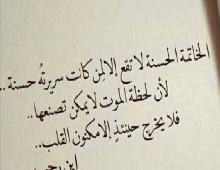 الخاتمة الحسنة لا تقع إلا لمن كانت سريرتهُ حسنة ..
لأن لحظة الموت لا يمكن تصنعها ..
فلا يخرج حينئذٍ إلا مكنون القلب ..
ابن رجب